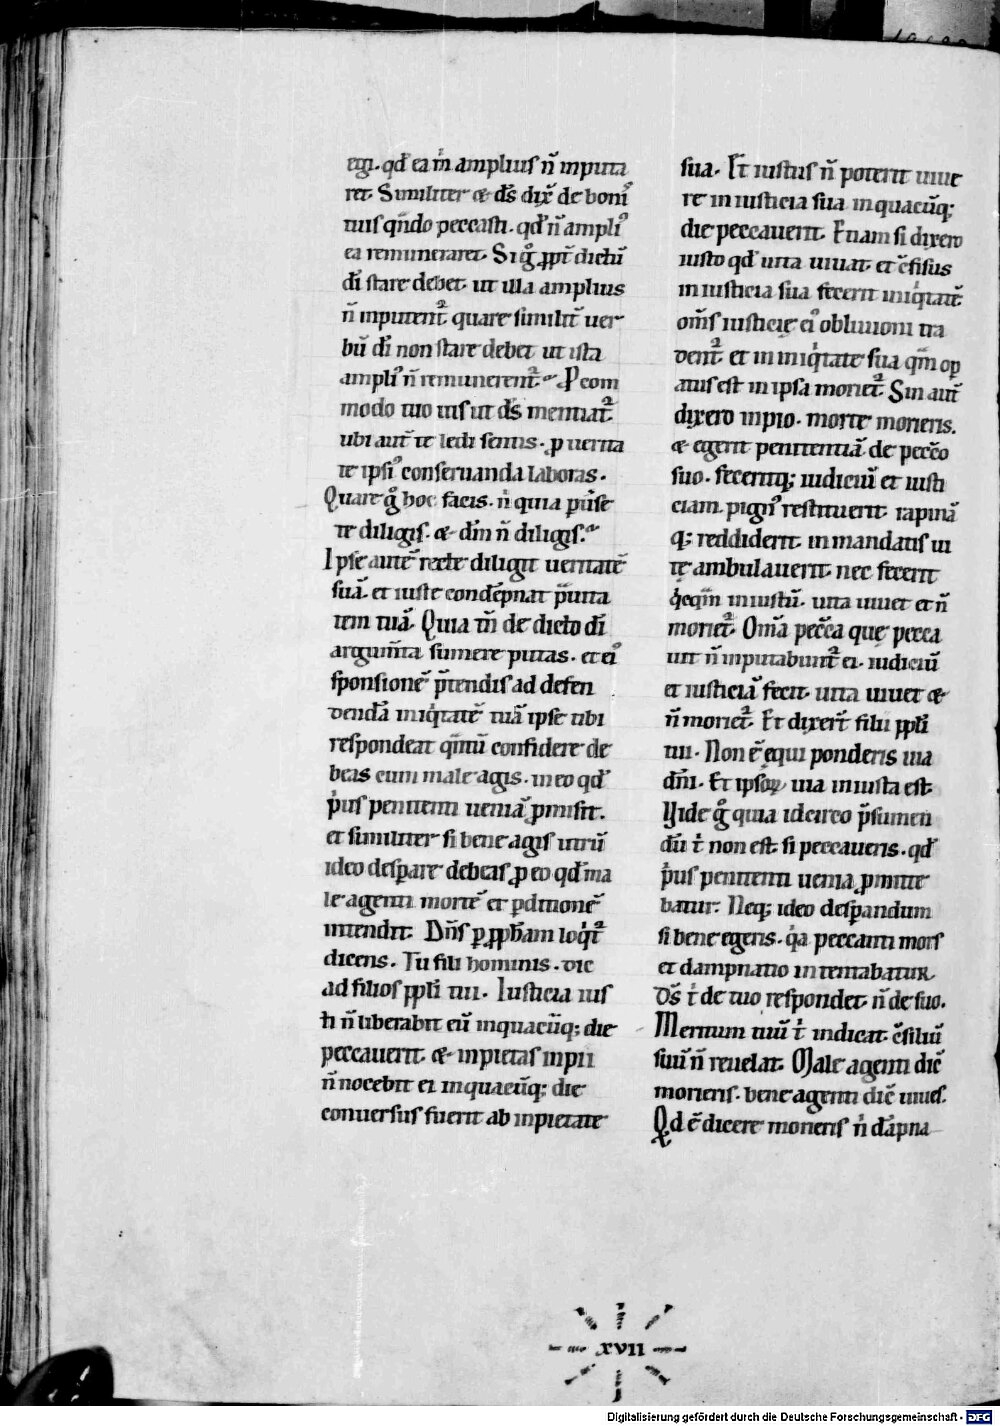 egi. qđ ea m̄ amplius n̄ inputa
ret. Similiter & dn̄s dix̄ de bonis
tuis qn̄do peccasti. qđ n̄ ampliꝰ
ea remuneraret. Si gͦ ꝓpt̄ dictū
dī stare debet. ut illa amplius
n̄ inputentᷣ quare similit̄ uer
bū dī non stare debet ut ista
ampliꝰ n̄ remunerentᷣ. Pcom
modo tuo uis ut dn̄s mentiatᷣ.
ubi aut̄ te ledi sentis. ꝓ uerita
te ipsiꝰ conseruanda laboras.
Quare gͦ hoc facis. n̄ quia ꝑuerse
te diligis. & dm̄ n̄ diligis.
Ipse autē recte diligit ueritatē
suā. et iuste condēpnat ꝑuita
tem tuā. Quia tn̄ de dicto dī
argum̄ta sumere putas. et eiꝰ
sponsionē p̄tendis ad defen
dendā iniq̇tatē tuā ipse tibi
respondeat qm̄ū confidere de
beas cum male agis. in eo qđ
p̄us penitenti ueniā ꝓmisit.
et similiter si bene agis utrū
ideo desꝑare debeas ꝓ eo qđ ma
le agenti mortē et ꝑditionē
intendit. Dn̄s ꝑ ꝓph̄am loq̇tᷣ
dicens. Tu fili hominis. dic
ad filios ꝓpli tui. Iusticia ius
ti n̄ liberabit eū inquacūq; die
peccauerit. & inpietas inpii
n̄ nocebit ei inquacūq; die
conuersus fuerit ab inpietate
sua. Et iustus n̄ poterit uiue
re in iusticia sua inquacūq;
die peccauerit. Etiam si dixero
iusto qđ uita uiuat. et c̄fisus
in iusticia sua fecerit iniq̇tatē
om̄s iusticię eiꝰ obliuioni tra
dentᷣ. et in iniq̇tate sua qm̄ oꝑ
atus est in ipsa morietᷣ. Sin aut̄
dixero inpio. morte morieris.
& egerit penitentiā de peccͦo
suo. feceritq; iudiciū et iusti
ciam. pignꝰ restituerit rapinā
q; reddiderit. in mandatis ui
tę ambulauerit. nec fecerit
q̇cqm̄ iniustū. uita uiuet et n̄
morietᷣ. Om̄a pecc̄a que pecca
uit n̄ inputabuntᷣ ei. iudiciū
et iusticiā fecit. uita uiuet &
n̄ morietᷣ. Et dixer̄t filii ꝓpli
tui. Non ē equi ponderis uia
dn̄i. Et ipsoꝝ uia iniusta est.
Vide gͦ quia idcirco p̄sumen
dū t̄ non est. si peccaueris. qđ
p̄us penitenti uenia ꝓmitte
batur. Neq; ideo desꝑandum
si bene egeris. q̇a peccanti mors
et dampnatio intentabatur.
Dn̄s t̄ de tuo respondet. n̄ de suo.
Meritum tuū t̄ indicat. c̄siliū
suū n̄ reuelat. Male agenti dic̄
morieris. bene agenti dic̄ uiues.
Qđ ē dicere morieris n̄ dāpna
xvii
Digitalisierung gefördert durch die Deutsche Forschungsgemeinschaft - DFG